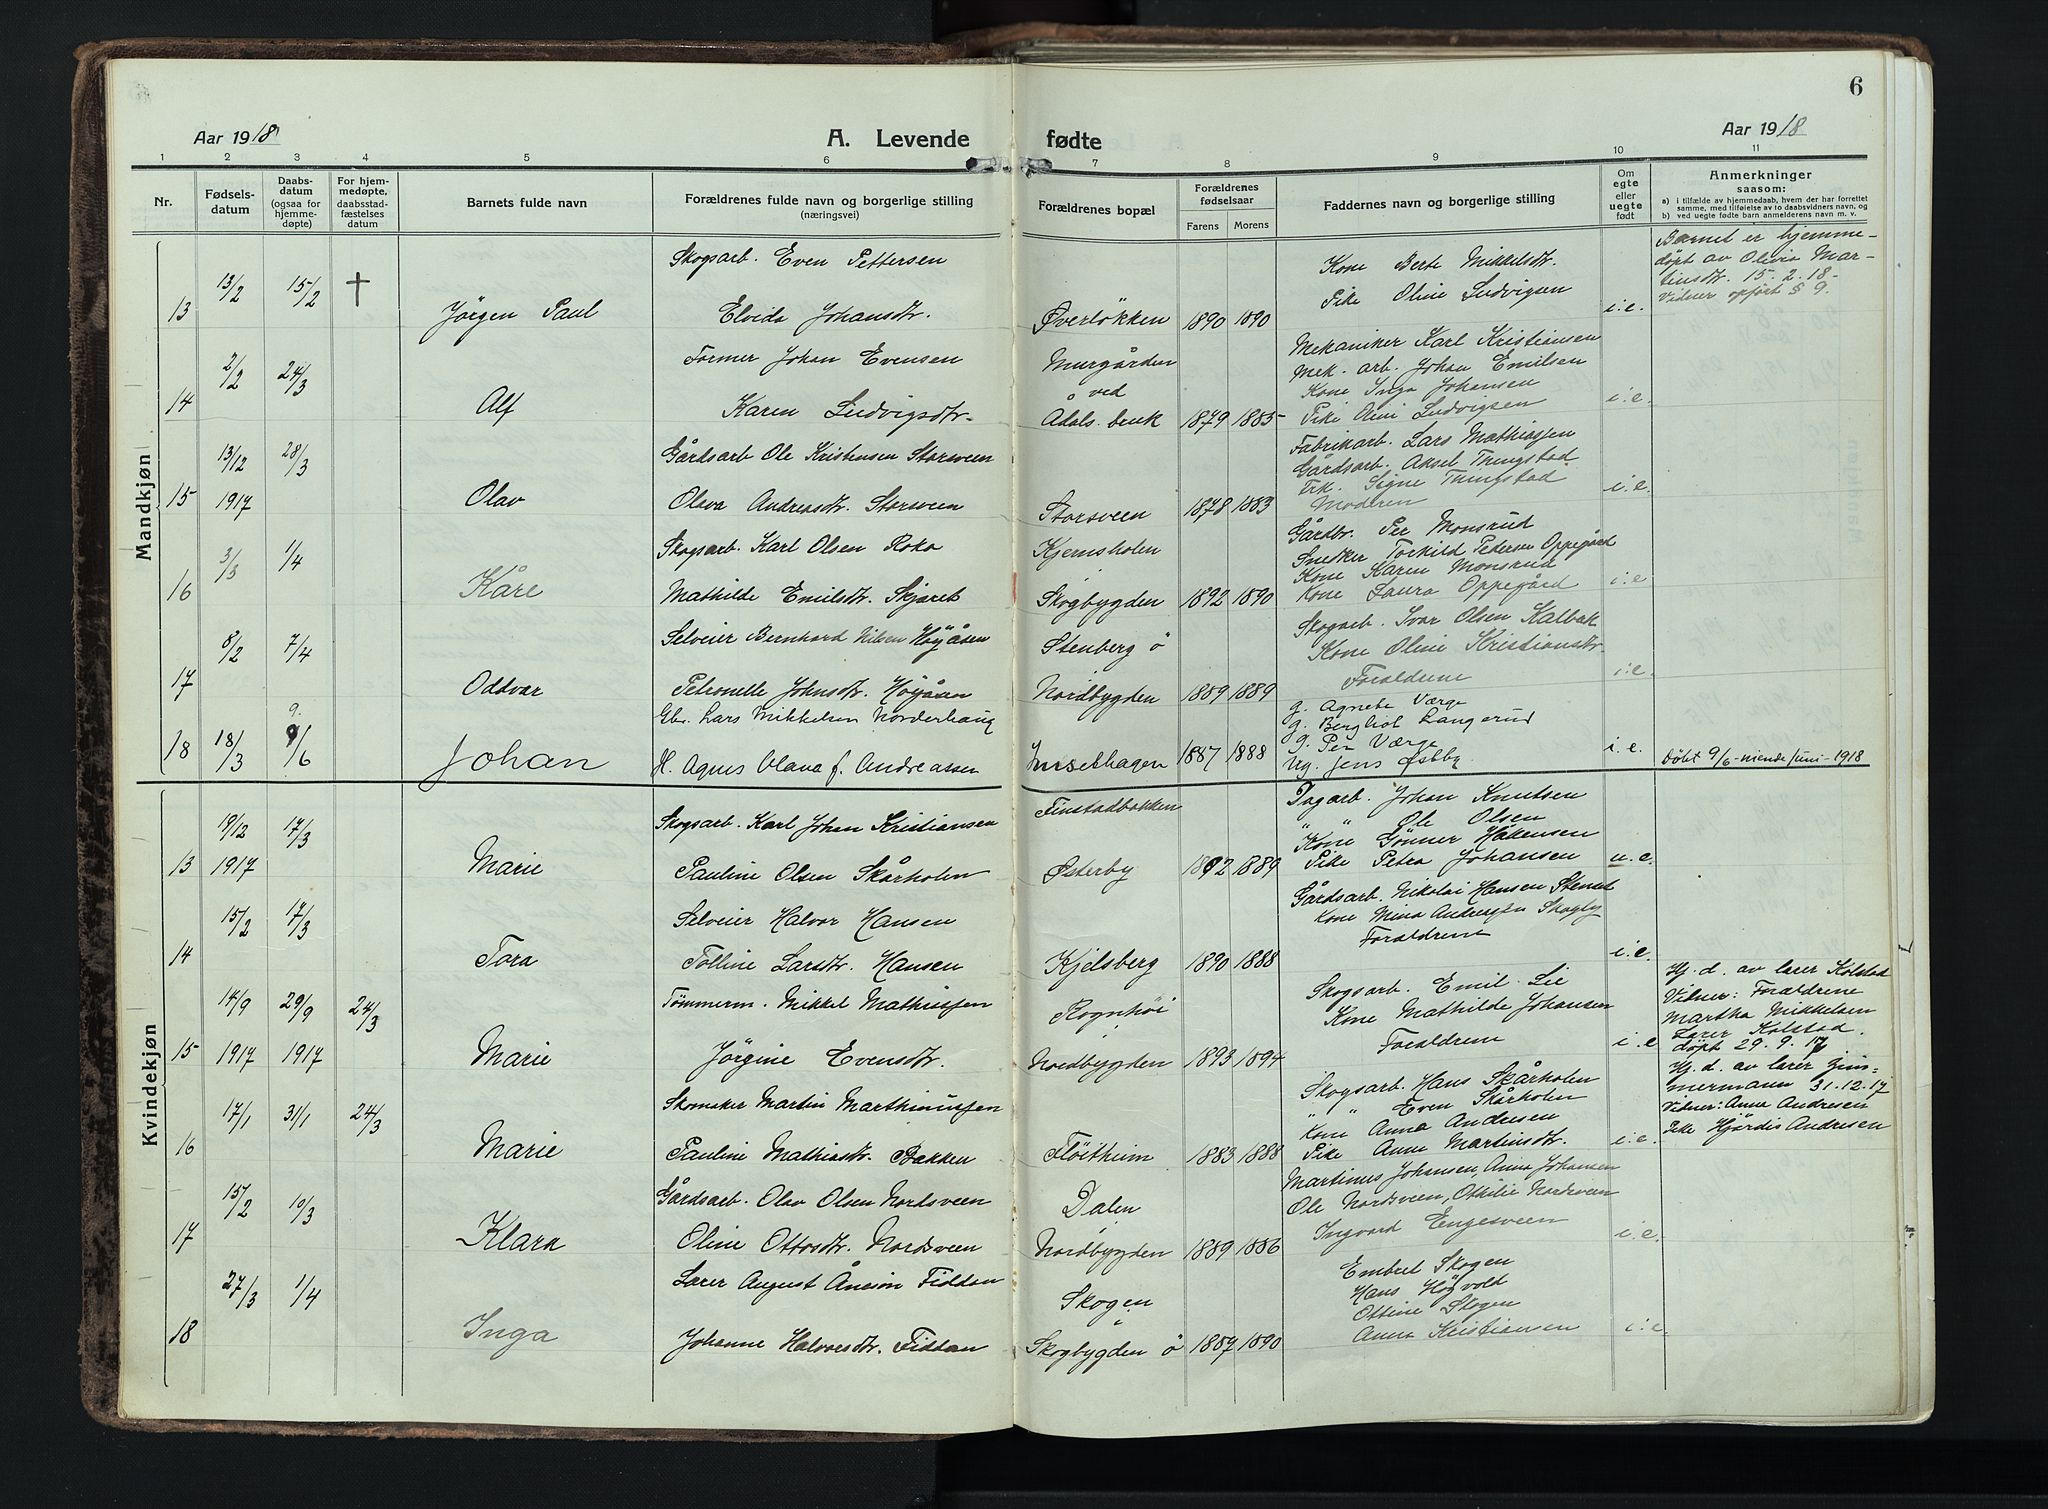 6
Aar 1918
A. Levende
fødte
Aar 1918
1 2 3 4 5 6 7 8 9 10 11
Nr.
Fødsels-
datum
Daabs-
datum
(ogsaa for
hjemme-
døpte)
For hjem-
medøpte,
daabsstad-
fæstelses
datum
Barnets fulde navn
Forældrenes fulde navn og borgerlige stilling
(næringsvei)
Forældrenes bopæl
Forældrenes
fødselsaar
Farens Morens
Faddernes navn og borgerlige stilling
Om
egte
eller
uegte
født
Anmerkninger
saasom:
a) i tilfælde av hjemmedaab, hvem der har forrettet
samme, med tilføielse av to daabsvidners navn, og
b) ved uegte fødte barn anmelderens navn m. v.
Mandkjøn
13
13/2
15/2
†
Jörgen Paul
Skogsarb. Even Pettersen
Elvida Johansdtr.
Øverlökken
1890 1890
Kone Berte Mikkelsdtr.
Pike Oline Ludvigsen
i.e.
Barnet er hjemme-
döpt av Olivia Mar-
tinsdtr. 15.2.18.
Vidner opført § 9.
14
2/2
24/3
Alf
Former Johan Evensen
Karen Ludvigsdtr.
Murgården
ved
Ådals bruk
1879 1885
Mekaniker Karl Kristiansen
Mek. arb. Johan Emilsen
Kone Inga Johansen
Pike Ludvigsen
i.e.
15
13/12
1917
28/3
Olav
Gårdsarb Ole Kristensen Storsveen
Olava Andreasdtr. Storsveen
Storsveen
1878 1883
Fabrikarb. Lars Mathiassen
Gårdsarb. Aksel Tingstad
Frk. Signe Tingstad
Moderen
i.e.
16
3/3
1/4
Kåre
Skogsarb. Karl Olsen Roko
Mathilde Emilsdtr. Skjæret
Kjernsholen
Skogbygden
1892 1890
Gårdbr. Per Monsrud
Snedker Torkild Pedersen Oppegård
Kone Karen Monsrud
Kone Laura Oppegård
i.e.
17
8/2
7/4
Oddvar
Selveier Bernhard Nilsen Höyåsen
Petronelle Johnsdtr. Höyåsen
Stenberg ö
Nordbygden
1889 1889
Skogarb. Ivar Olsen Kalbak
Kone Oline Kristiansdtr.
Forældrene
i.e.
18
18/3
9.
9/6
Johan
Gbr. Lars Mikkelsen Norderhaug
H. Agnes Olava f. Andreassen
Jussethagen
1887 1888
g. Agnete Værge
g. Bergliot Langerud
g. Per Værge
Ug. Jens Østby
i.e.
Döbt 9/6 - niende juni - 1918
Kvindekjøn
13
19/12
1917
17/3
Marie
Skogsarb. Karl Johan Kristiansen
Pauline Olsen Skårholen
Finstadbakken
Østerby
1892 1889
Dagarb. Johan Knutsen
" " Ole Olsen
Kone Gönner Håkensen
Pike Petra Johansen
u.e.
14
15/2
17/3
Tora
Selveier Halvor Hansen
Tolline Larsdtr. Hansen
Kjelsberg
1890 1888
Gårdsarb. Nikolai Hansen
Kone Mina Andresen Skogby
Forældrene
i.e.
15
14/9
1917
29/9
1917
24/3
Marie
Tömmerm. Mikkel Mathiassen
Jörgine Evensdtr.
Rognhöi
Nordbygden
1893 1894
Skogsarb. Emil Lie
Kone Mathilde Johansen
Forældrene
i.e
Hj. d. av lærer Kolstad
Vidner: Forældrene
Martha Mikkelsen
Lærer Kolstad.
döpt 29.9.17
16
17/1
31/1
24/3
Marie
Skomaker Martin Marthinussen
Pauline Mathiasdtr. Bakken
Flöitheim
1883 1888
Skogsarb. Hans Skårholen
" " Even Skårholen
Kone Anna Andresen
Pike Anne Martinsdtr.
i.e.
Hj. d. av lærer Zim-
mermann 31.12.17
Vidner: Anna Andresen
Pike Hjördis Andresen
17
15/2
10/3
Klara
Gårdsarb. Olav Olsen Nordsveen
Oline Ottosdtr. Nordsveen
Dalen
Nordbygden
1889 1886
Martinus Johansen, Anna Johansen
Ole Nordsveen, Othilie Nordsveen
Ingvard Engesveen
i.e.
18
27/3
1/4
Inga
Lærer August Åneson Fiddan
Johanne Halvorsdtr. Fiddan
Skogen
Skogbygden ö
1887 1890
Embret Skogen
Hans Högvold
Ottine Skogen
Anna Kristiansen
i.e.